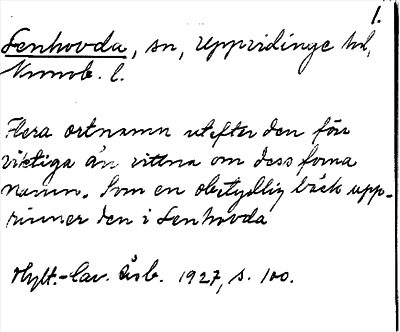 1.
Lenhovda, sn, Uppvidinge hd,
Kronob. l.
Flera ortnamn utefter den för
viktiga ån vittna om dess forna
namn. Som en obetydlig bäck upp-
rinner den i Lenhovda
Hylt.-Cav. Årsb. 1927, s. 100.